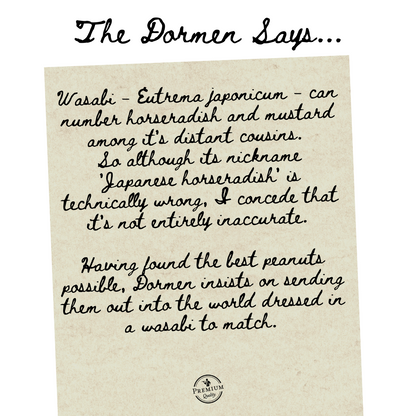 The Dormen Says...
Wasabi - Eutrema japonicum - can
number horseradish and mustard
among it's distant cousins.
So although its nickname
'Japanese horseradish' is
technically wrong, I concede that
it's not entirely inaccurate.
Having found the best peanuts
possible, Dormen insists on sending
them out into the world dressed in
a wasabi to match.
PREMIUM
Quality